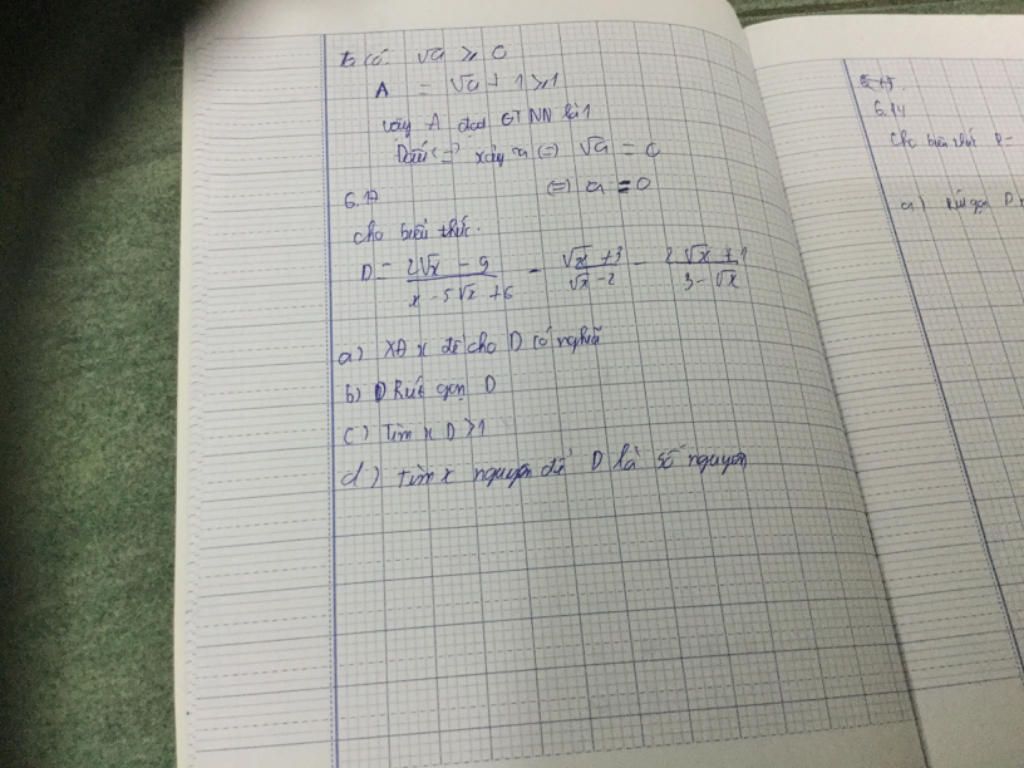 ta có √a ≥ 0
A = √a + 1 ≥ 1
vậy A đạt GTNN là 1
Dấu (=) xảy ra (=) √a = 0
(=) a = 0
6.19
cho biểu thức.
D = (2√x - 9)/(x - 5√x + 6) - (√x + 3)/(√x - 2) - (2√x + 1)/(3 - √x)
a) XĐ x để cho D có nghĩa
b) Rút gọn D
c) Tìm x D > 1
d) tìm x nguyên để D là số nguyên
6.14
Cho biểu thức P =
a) Rút gọn P